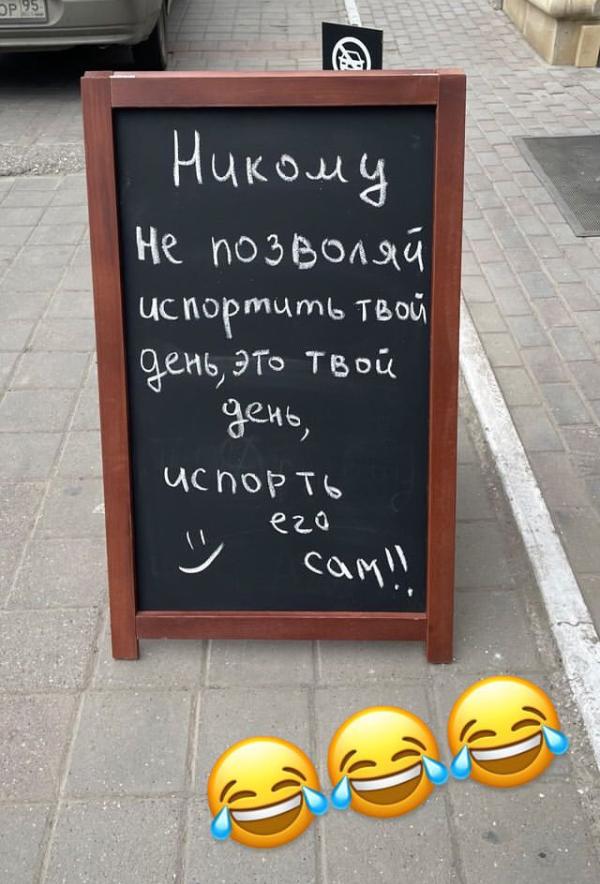 ОР 95
Никому
не позволяй
испортить твой
день, это твой
день,
испорть
его
сам!!